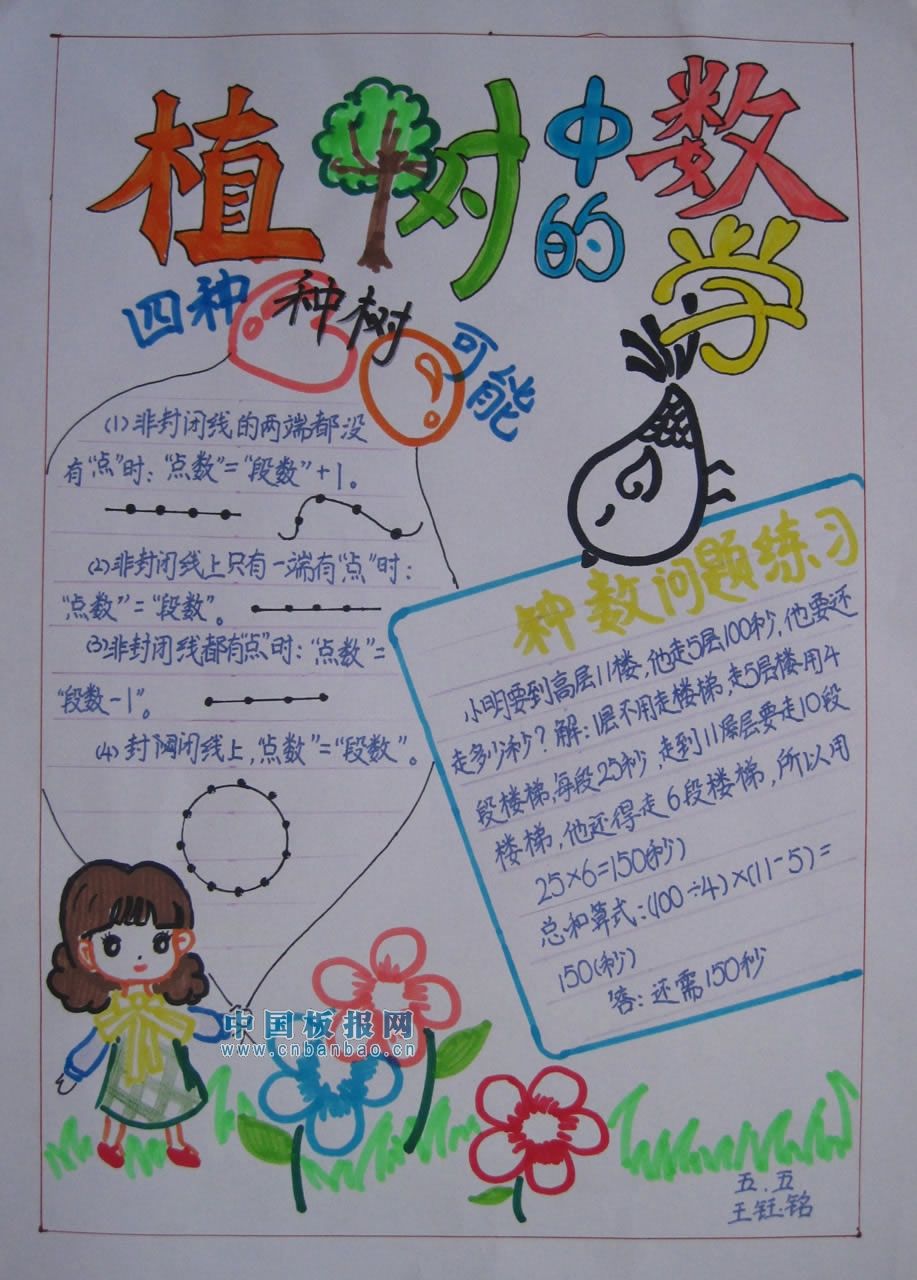 植树中的数学
四种种树可能
(1)非封闭线的两端都没
有“点”时：“点数”=“段数”+1。
(2)非封闭线上只有一端有“点”时：
“点数”=“段数”。
(3)非封闭线都有“点”时：“点数”=
“段数-1”。
(4)封闭线上，“点数”=“段数”。
种数问题练习
小明要到高层11楼，他走5层100秒，他要还
走多少秒？解：1层不用走楼梯，走5层楼用4
段楼梯，每段25秒，走到11层要走10段
楼梯，他还得走6段楼梯，所以用
25×6=150(秒)
总和算式：(100÷4)×(11-5)=
150(秒)
答：还需150秒
中国板报网
www.cnbanbao.cn
五.五
王钰铭